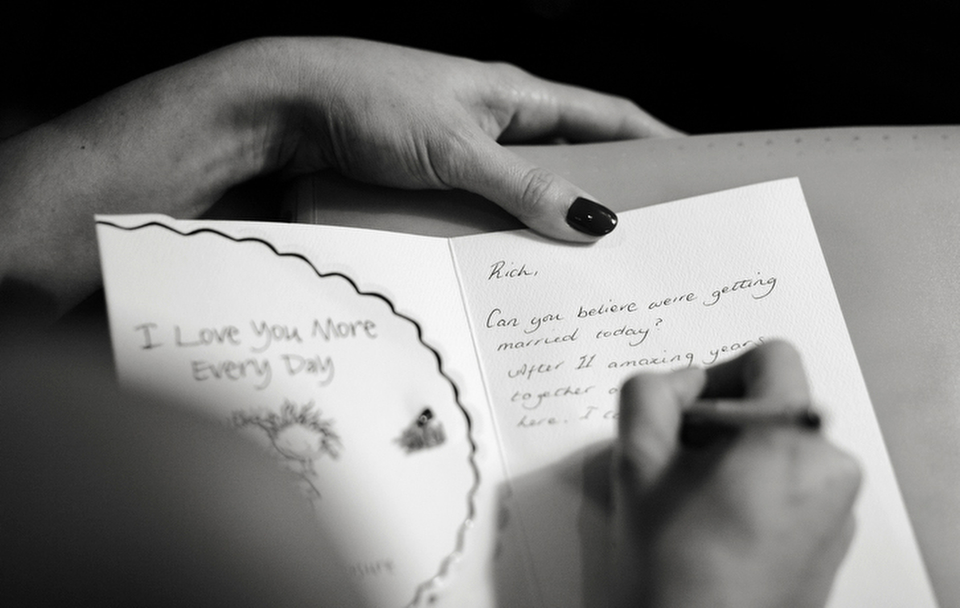 I Love You More
Every Day
Rich,
Can you believe we're getting
married today?
After 11 amazing years
together
here. I